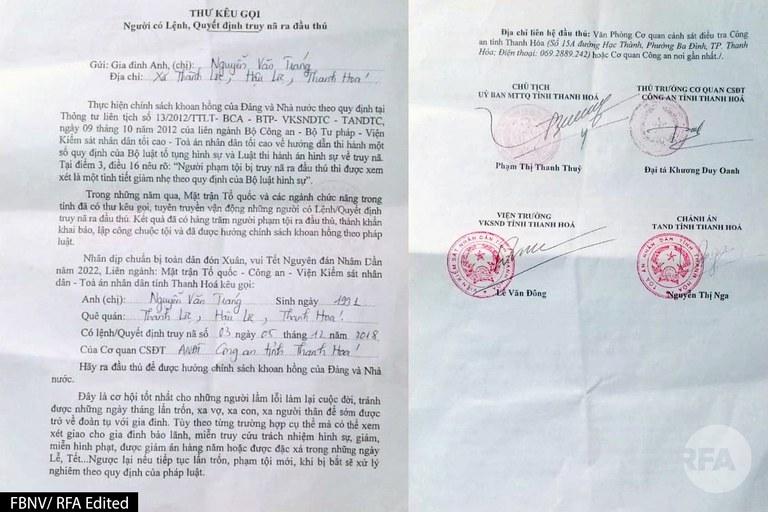 THƯ KÊU GỌI
Người có Lệnh, Quyết định truy nã ra đầu thú
Gửi: Gia đình Anh, (chị): Nguyễn Văn Tráng
Địa chỉ: Xã Thành Lộc, Hậu Lộc, Thanh Hoá!
Thực hiện chính sách khoan hồng của Đảng và Nhà nước theo quy định tại
Thông tư liên tịch số 13/2012/TTLT- BCA - BTP- VKSNDTC - TANDTC,
ngày 09 tháng 10 năm 2012 của liên ngành Bộ Công an - Bộ Tư pháp - Viện
Kiểm sát nhân dân tối cao - Toà án nhân dân tối cao về hướng dẫn thi hành một
số quy định của Bộ luật tố tụng hình sự và Luật thi hành án hình sự về truy nã.
Tại điểm 3, điều 16 nêu rõ: “Người phạm tội bị truy nã ra đầu thú thì được xem
xét là một tình tiết giảm nhẹ theo quy định của Bộ luật hình sự”.
Trong những năm qua, Mặt trận Tổ quốc và các ngành chức năng trong
tỉnh đã có thư kêu gọi, tuyên truyền vận động những người có Lệnh/Quyết định
truy nã ra đầu thú. Kết quả đã có hàng trăm người phạm tội ra đầu thú, thành khẩn
khai báo, lập công chuộc tội và đã được hưởng chính sách khoan hồng theo pháp
luật.
Nhân dịp chuẩn bị toàn dân đón Xuân, vui Tết Nguyên đán Nhâm Dần
năm 2022, Liên ngành: Mặt trận Tổ quốc - Công an - Viện Kiểm sát nhân
dân - Toà án nhân dân tỉnh Thanh Hoá kêu gọi:
Anh (chị): Nguyễn Văn Tráng Sinh ngày 1991
Quê quán: Thành Lộc, Hậu Lộc, Thanh Hoá!
Có lệnh/Quyết định truy nã số 03 ngày 05 tháng 12 năm 2018.
Của Cơ quan CSĐT ANĐT Công an tỉnh Thanh Hoá!
Hãy ra đầu thú để được hưởng chính sách khoan hồng của Đảng và Nhà
nước.
Đây là cơ hội tốt nhất cho những người lầm lỗi làm lại cuộc đời, tránh
được những ngày tháng lẩn trốn, xa vợ, xa con, xa người thân để sớm được
trở về đoàn tụ với gia đình. Tùy theo từng trường hợp cụ thể mà có thể xem
xét giao cho gia đình bảo lãnh, miễn truy cứu trách nhiệm hình sự, giảm,
miễn hình phạt, được giảm án hàng năm hoặc được đặc xá trong những ngày
Lễ, Tết...Ngược lại nếu tiếp tục lẩn trốn, phạm tội mới, khi bị bắt sẽ xử lý
nghiêm theo quy định của pháp luật.
Địa chỉ liên hệ đầu thú: Văn Phòng Cơ quan cảnh sát điều tra Công
an tỉnh Thanh Hóa (Số 15A đường Hạc Thành, Phường Ba Đình, TP. Thanh
Hóa; Điện thoại: 069.2889.242) hoặc Cơ quan Công an nơi gần nhất./.
CHỦ TỊCH
UỶ BAN MTTQ TỈNH THANH HOÁ
Phạm Thị Thanh Thuỷ
THỦ TRƯỞNG CƠ QUAN CSĐT
CÔNG AN TỈNH THANH HOÁ
Đại tá Khương Duy Oanh
VIỆN TRƯỞNG
VKSND TỈNH THANH HOÁ
Lê Văn Đông
CHÁNH ÁN
TAND TỈNH THANH HOÁ
Nguyễn Thị Nga
RFA
FBNV/ RFA Edited